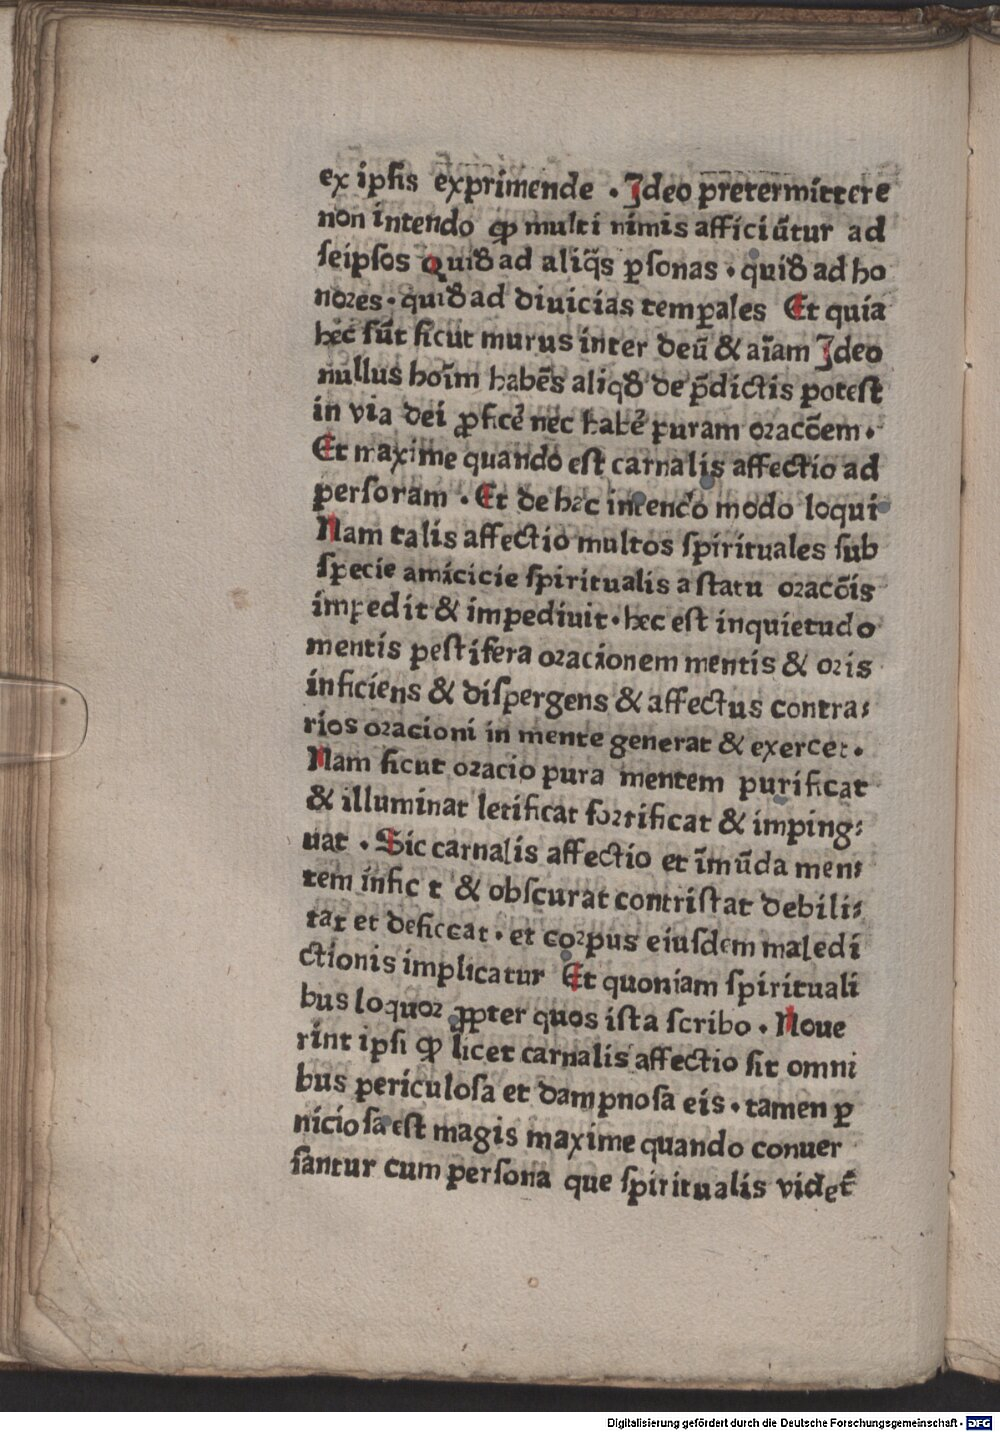 ex ipsis exprimende . Ideo pretermittere
non intendo ꝙ multi nimis afficiūtur ad
seipsos Quidā ad aliq̄s ꝑsonas . quidā ad ho
nores . quidā ad diuicias temꝑales Et quia
hec sūt sicut murus inter deū & aīam Ideo
nullus hoīm habēs aliqđ de p̄dictis potest
in via dei ꝓficē nec habē puram oracōem .
Et maxime quando est carnalis affectio ad
personam . Et de hac intendo modo loqui
Nam talis affectio multos spirituales sub
specie amicicie spiritualis a statu oracōis
impedit & impediuit . hec est inquietudo
mentis pestifera oracionem mentis & oris
inficiens & dispergens & affectus contra⸗
rios oracioni in mente generat & exercet .
Nam sicut oracio pura mentem purificat
& illuminat letificat fortificat & imping⸗
uat . Sic carnalis affectio et īmūda men⸗
tem infic t & obscurat contristat debili⸗
tat et desiccat . et corpus eiusdem maledi
ctionis implicatur Et quoniam spirituali
bus loquor ꝓpter quos ista scribo . Noue
rint ipsi ꝙ licet carnalis affectio sit omni
bus periculosa et dampnosa eis . tamen ꝑ
niciosa est magis maxime quando conuer
santur cum persona que spiritualis videt̄
Digitalisierung gefördert durch die Deutsche Forschungsgemeinschaft - DFG